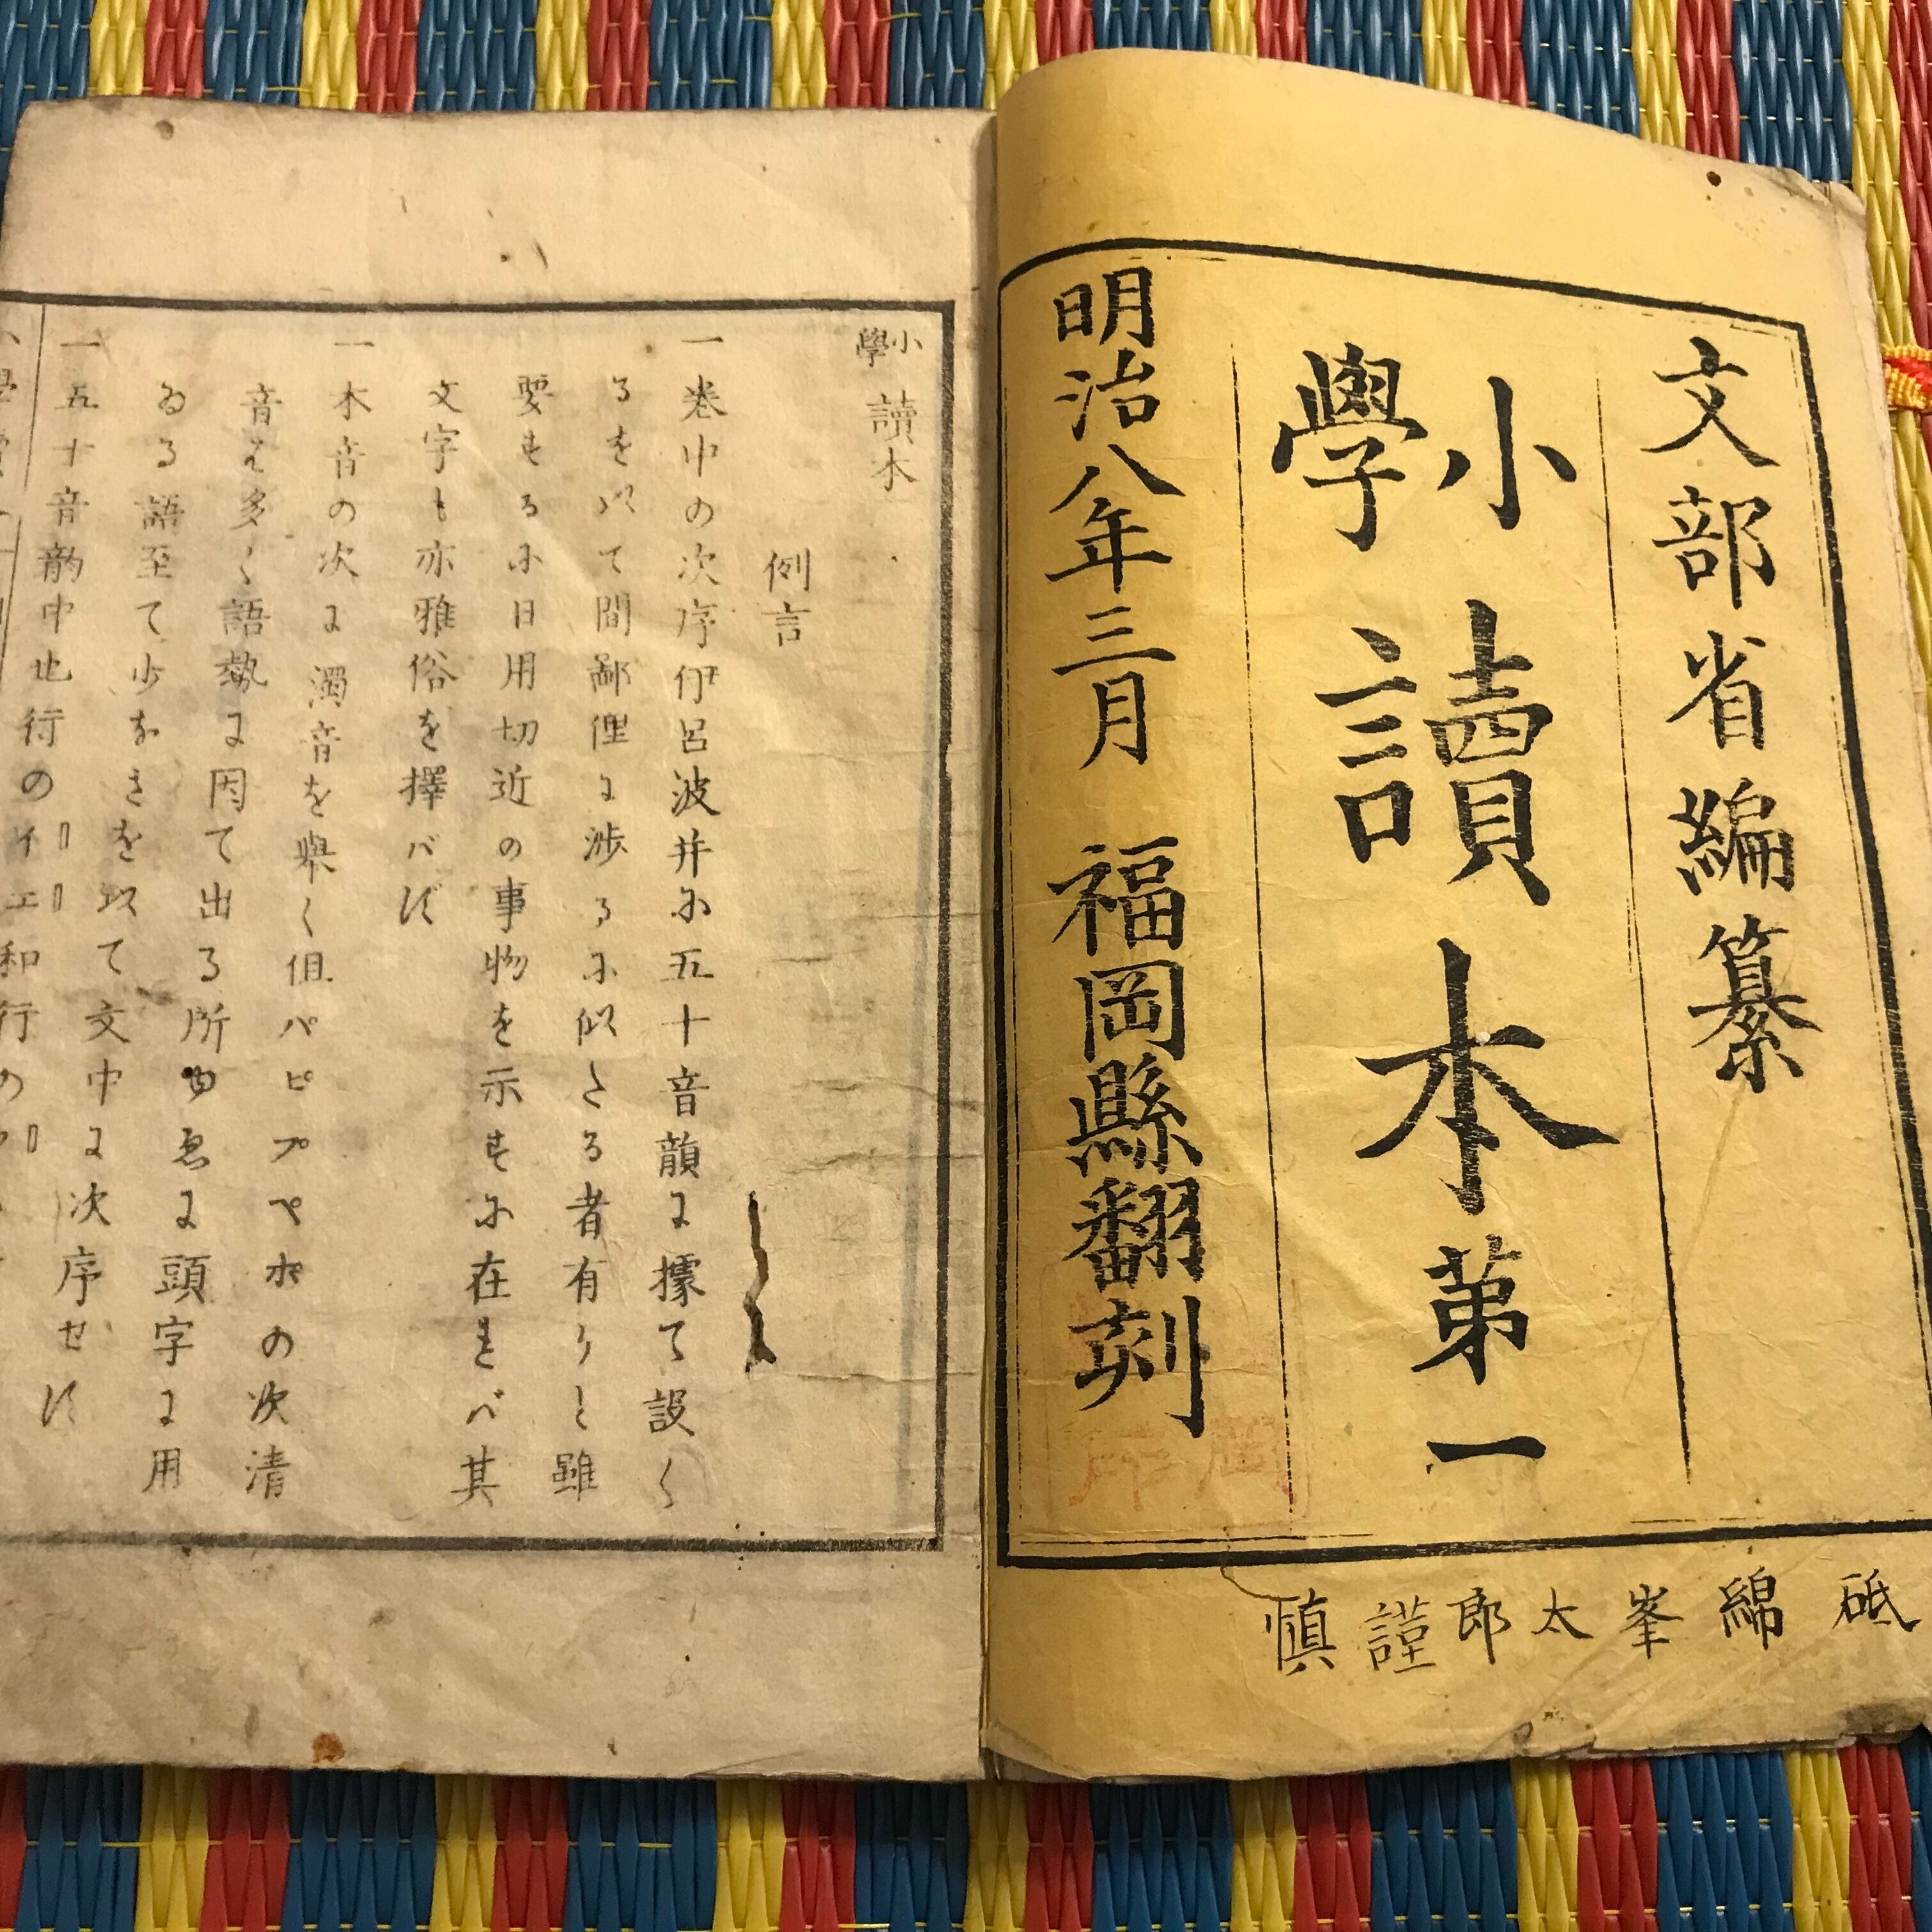 文部省編纂
小學讀本第一
明治八年三月 福岡縣翻刻
砥綿峯太郎謹慎
小學讀本
例言
一巻中の次序伊呂波并に五十音韻に據て設く
るを以て間鄙俚に渉るに似たる者有りと雖
要するに日用切近の事物を示すに在れバ其
文字も亦雅俗を擇バず
一本音の次に濁音を擧く但パピプペポの次清
音は多く語勢に因て出る所ゆゑに頭字に用
ゐる語至て少なきを以て文中に次序せず
一五十音韵中也行のイエ和行の